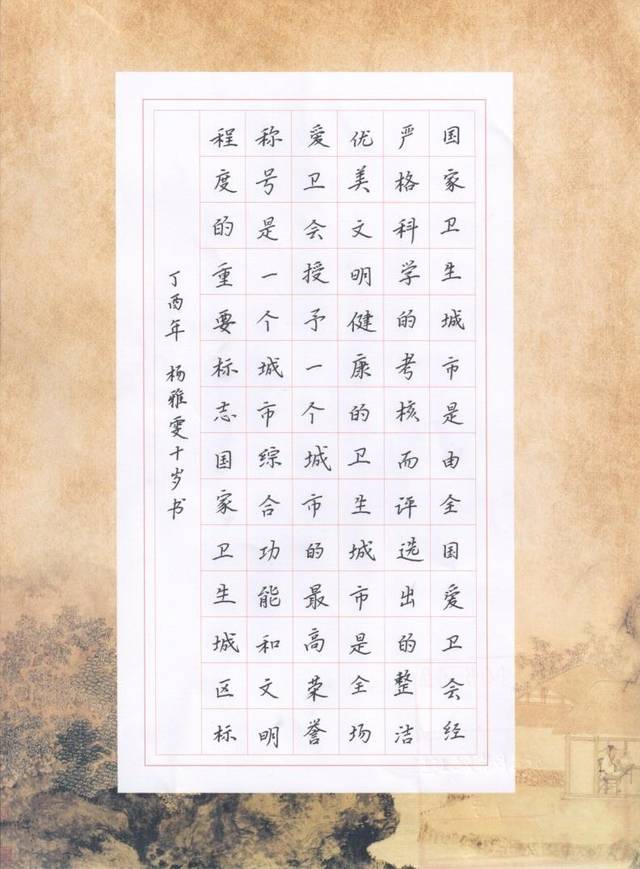 国家卫生城市是由全国爱卫会经
严格科学的考核而评选出的整洁
优美文明健康的卫生城市是全场
爱卫会授予一个城市的最高荣誉
称号是一个城市综合功能和文明
程度的重要标志国家卫生城区标
丁酉年 杨雅雯十岁书